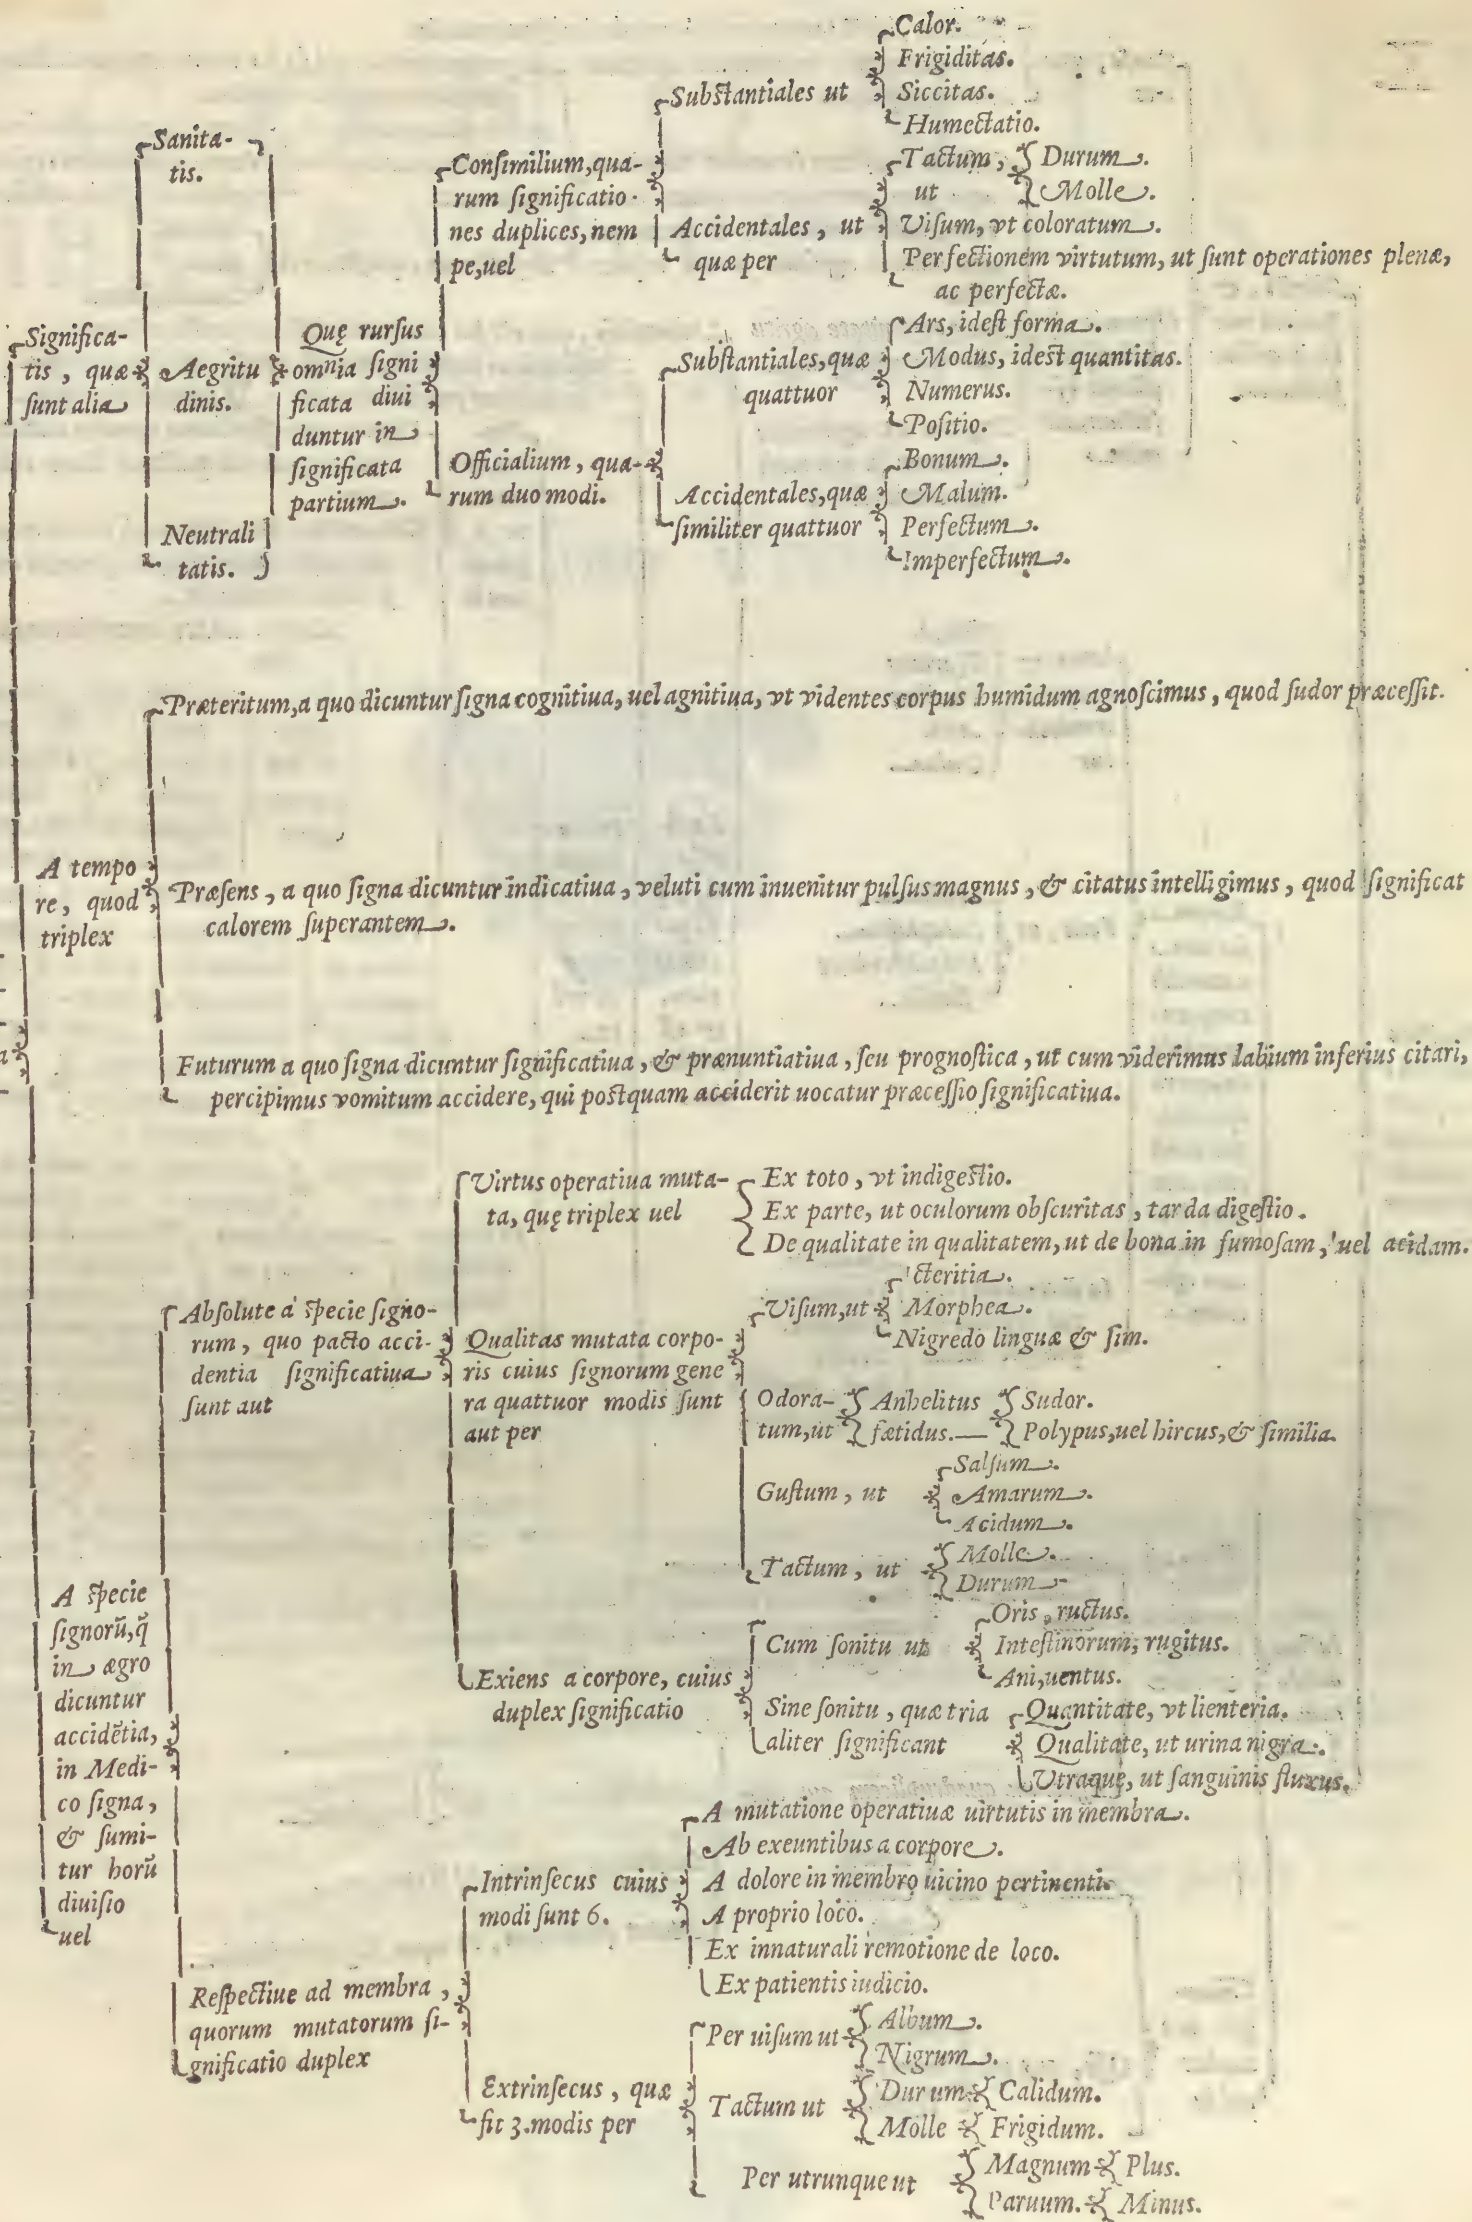 Significa-
tis, quæ
ſunt alia
Sanita-
tis.
Aegritu
dinis.
Neutrali
tatis.
Quę rurſus
omnia ſigni
ficata diui
duntur in
ſignificata
partium.
Conſimilium, qua-
rum ſignificatio-
nes duplices, nem
pe, uel
Subſtantiales ut
Calor.
Frigiditas.
Siccitas.
Humectatio.
Accidentales, ut
quæ per
Tactum,
ut
Durum.
Molle.
Viſum, vt coloratum.
Perfectionem virtutum, ut ſunt operationes plenæ,
ac perfectæ.
Officialium, qua-
rum duo modi.
Subſtantiales, quæ
quattuor
Ars, ideſt forma.
Modus, ideſt quantitas.
Numerus.
Poſitio.
Accidentales, quæ
ſimiliter quattuor
Bonum.
Malum.
Perfectum.
Imperfectum.
A tempo
re, quod
triplex
Præteritum, a quo dicuntur ſigna cognitiua, uel agnitiua, vt videntes corpus humidum agnoſcimus, quod ſudor præceſſit.
Præſens, a quo ſigna dicuntur indicatiua, veluti cum inuenitur pulſus magnus, & citatus intelligimus, quod ſignificat
calorem ſuperantem.
Futurum a quo ſigna dicuntur ſignificatiua, & prænuntiatiua, ſeu prognoſtica, ut cum viderimus labium inferius citari,
percipimus vomitum accidere, qui poſtquam acciderit uocatur præceſſio ſignificatiua.
A ſpecie
ſignorũ, q̃
in ægro
dicuntur
accidẽtia,
in Medi-
co ſigna,
& ſumi-
tur horũ
diuiſio
uel
Abſolute a ſpecie ſigno-
rum, quo pacto acci-
dentia ſignificatiua
ſunt aut
Virtus operatiua muta-
ta, quę triplex uel
Ex toto, vt indigeſtio.
Ex parte, ut oculorum obſcuritas, tarda digeſtio.
De qualitate in qualitatem, ut de bona in fumoſam, uel acidam.
Qualitas mutata corpo-
ris cuius ſignorum gene
ra quattuor modis ſunt
aut per
Viſum, ut
cteritia.
Morphea.
Nigredo linguæ & ſim.
Odora-
tum, ut
Anhelitus
fætidus.
Sudor.
Polypus, uel hircus, & ſimilia.
Guſtum, ut
Salſum.
Amarum.
Acidum.
Tactum, ut
Molle.
Durum
Exiens a corpore, cuius
duplex ſignificatio
Cum ſonitu ut
Oris, ructus.
Inteſtinorum, rugitus.
Ani, uentus.
Sine ſonitu, quæ tria
aliter ſignificant
Quantitate, vt lienteria.
Qualitate, ut urina nigra.
Vtraque, ut ſanguinis fluxus.
Reſpectiue ad membra,
quorum mutatorum ſi-
gnificatio duplex
Intrinſecus cuius
modi ſunt 6.
A mutatione operatiuæ uirtutis in membra.
Ab exeuntibus a corpore.
A dolore in membro uicino pertinenti.
A proprio loco.
Ex innaturali remotione de loco.
Ex patientis iudicio.
Extrinſecus, quæ
fit 3. modis per
Per uiſum ut
Album.
Nigrum.
Tactum ut
Durum Calidum.
Molle Frigidum.
Per utrunque ut
Magnum Plus.
Paruum. Minus.